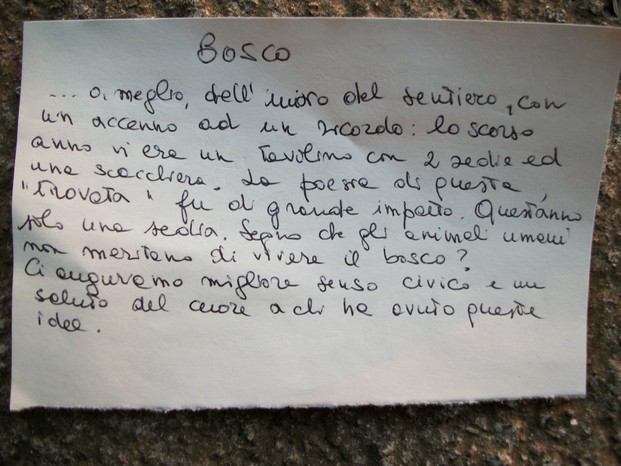 BOSCO
... o, meglio, dell'inizio del sentiero, con
un accenno ad un ricordo: lo scorso
anno vi era un tavolino con 2 sedie ed
una scacchiera. La poesia di questa
"trovata" fu di grande impatto. Quest'anno
solo una sedia. Segno che gli animali umani
non meritano di vivere il bosco?
Ci auguriamo migliore senso civico e un
saluto dal cuore a chi ha avuto queste
idee.